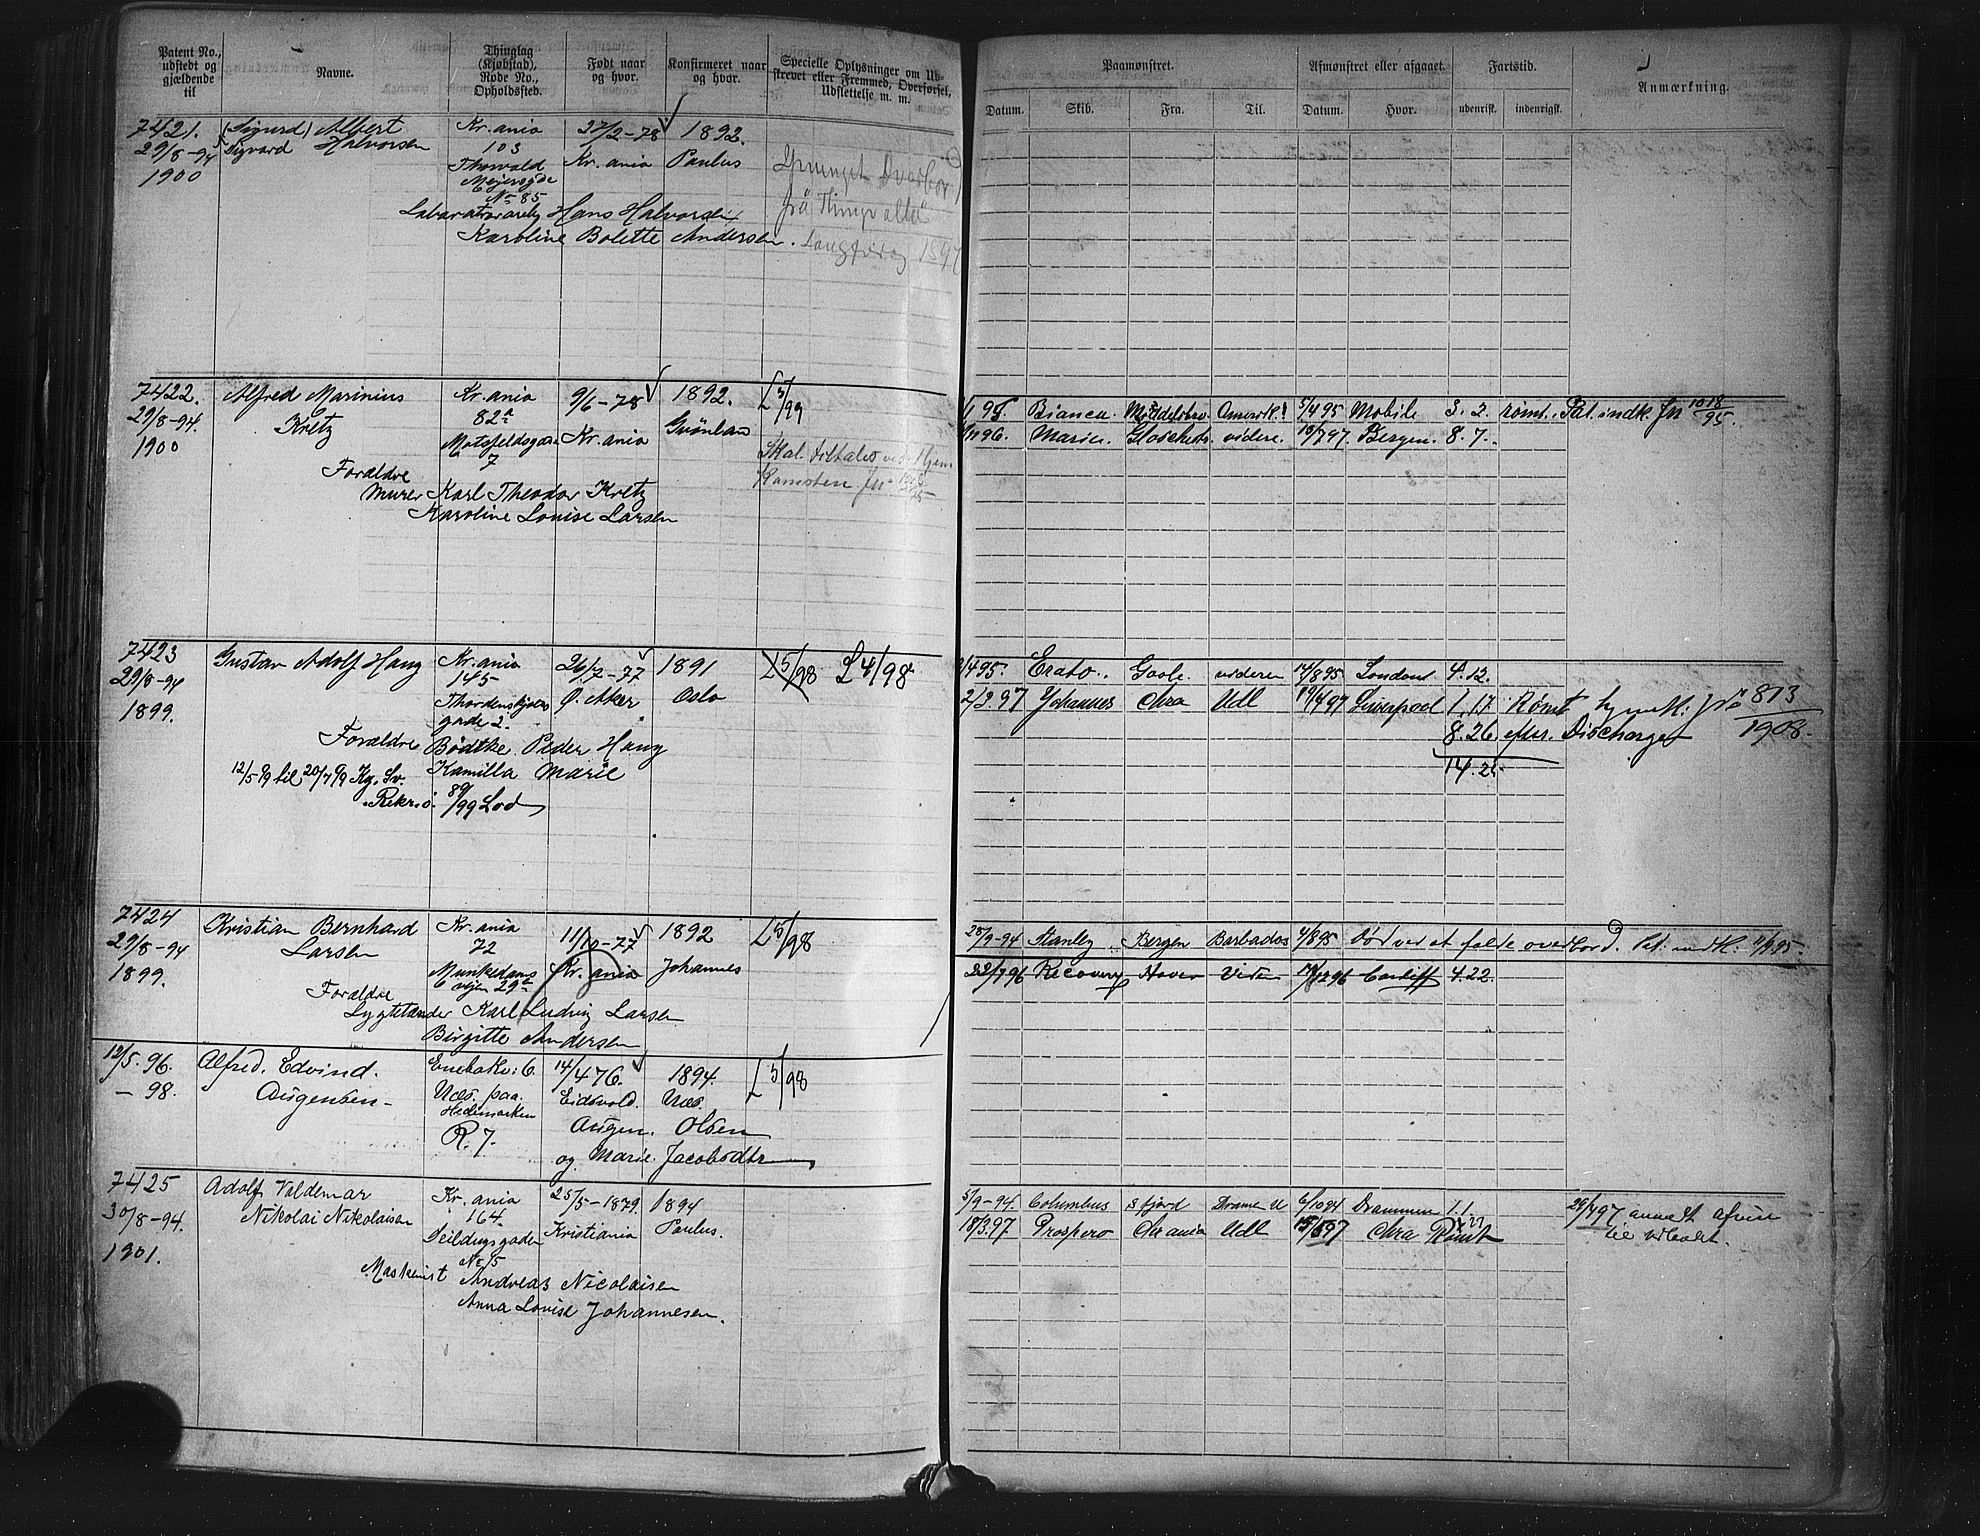 Patent No., udstedt og gjældende til
Navne.
Thinglag (Kjøbstad), Rode No., Opholdssted.
Født naar og hvor.
Konfirmeret naar og hvor.
Specielle Oplysninger om Udskrevet eller Fremmed, Overførsel, Udslettelse m. m.
Paamønstret.
Afmønstret eller afgaaet.
Fartstid.
Anmærkning.
Datum. Skib. Fra. Til. Datum. Hvor. udenrigst. indenrigst.
7421. (Sigurd) Albert Kr.ania 27/2-78 1892.
29/8-94 Sigvard Halvorsen 103 Kr.ania Paulus
1900 Thorvald
Meyersgde
No 85
Hans Halvorsen
Karoline Bolette Andersen.
fra "Thingvalla"
7422. Alfred Marinius Kr.ania 9/6-78 1892. L 3/99
29/8-94. Kretz 82a Kr.ania Grønland
1900 7
Forældre
Murer Karl Theodor Kretz
Karoline Louise Larsen
Skal tiltales ved Hjem
Komsten Jn
95 Bianca. 5/4 95 Mobile 3. 2. rømt. Pat. indk. Jn 1018/95.
96. Marie. videre. 97. Bergen. 8. 7.
7423 Gustav Adolf Haug Kr.ania 26/7-77 1891 L 5/98 L 4/98
29/8-94 145 Ø. Aker Oslo
1899. Thordenskjolds
gade 2
Forældre Bødtke. Peder Haug
Kamilla Marie
12/5 99 til 20/7 99 Kg. Sv.
89/99 Lod
4 95. Erato. Goole. videre 14/8 95 London 4. 12.
2/3 97 Johannes Chra Udl 19/4 97 Liverpool 1. 17 Rømt 813/1903.
8. 26. efter Discharge
14. 25
7424 Kristian Bernhard Kr.ania 11/10-77 1892 L 5/98
29/8-94 Larsen 72 Kr.ania Johannes
1899. Munkedams
vejen 29a
Forældre
Lygtetænder Karl Ludvig Larsen
Birgitte Andersen
28/9-94 Stanley Bergen Barbados 4/8 95 Død ved at falde overbord. Pat. indk. 11/9 95.
22/7 96 Recovery 12 96 Cardiff 4. 22.
12/5. 96. Alfred. Edvind. Enebak: 6. 14/4 76. 1894. L 3/98
- 98. Augensen - Næs. paa. Eidsvold. Næs.
Hedemarken
R. 7. Augen. Olsen
og Marie. Jacobsdtr
7425 Adolf Valdemar Kr.ania 25/5-1879 1894
30/8-94. Nikolai Nikolaisen 164. Kristiania Paulus.
1901. No 15
Maskinist Andreas Nicolaisen
Anna Lovise Johannesen.
5/9-94. Columbus S fjord Dramen U 6/10 94 Drammen 1. 1.
18/3 97 Prospero Chrania Udl 97 Chra Rømt